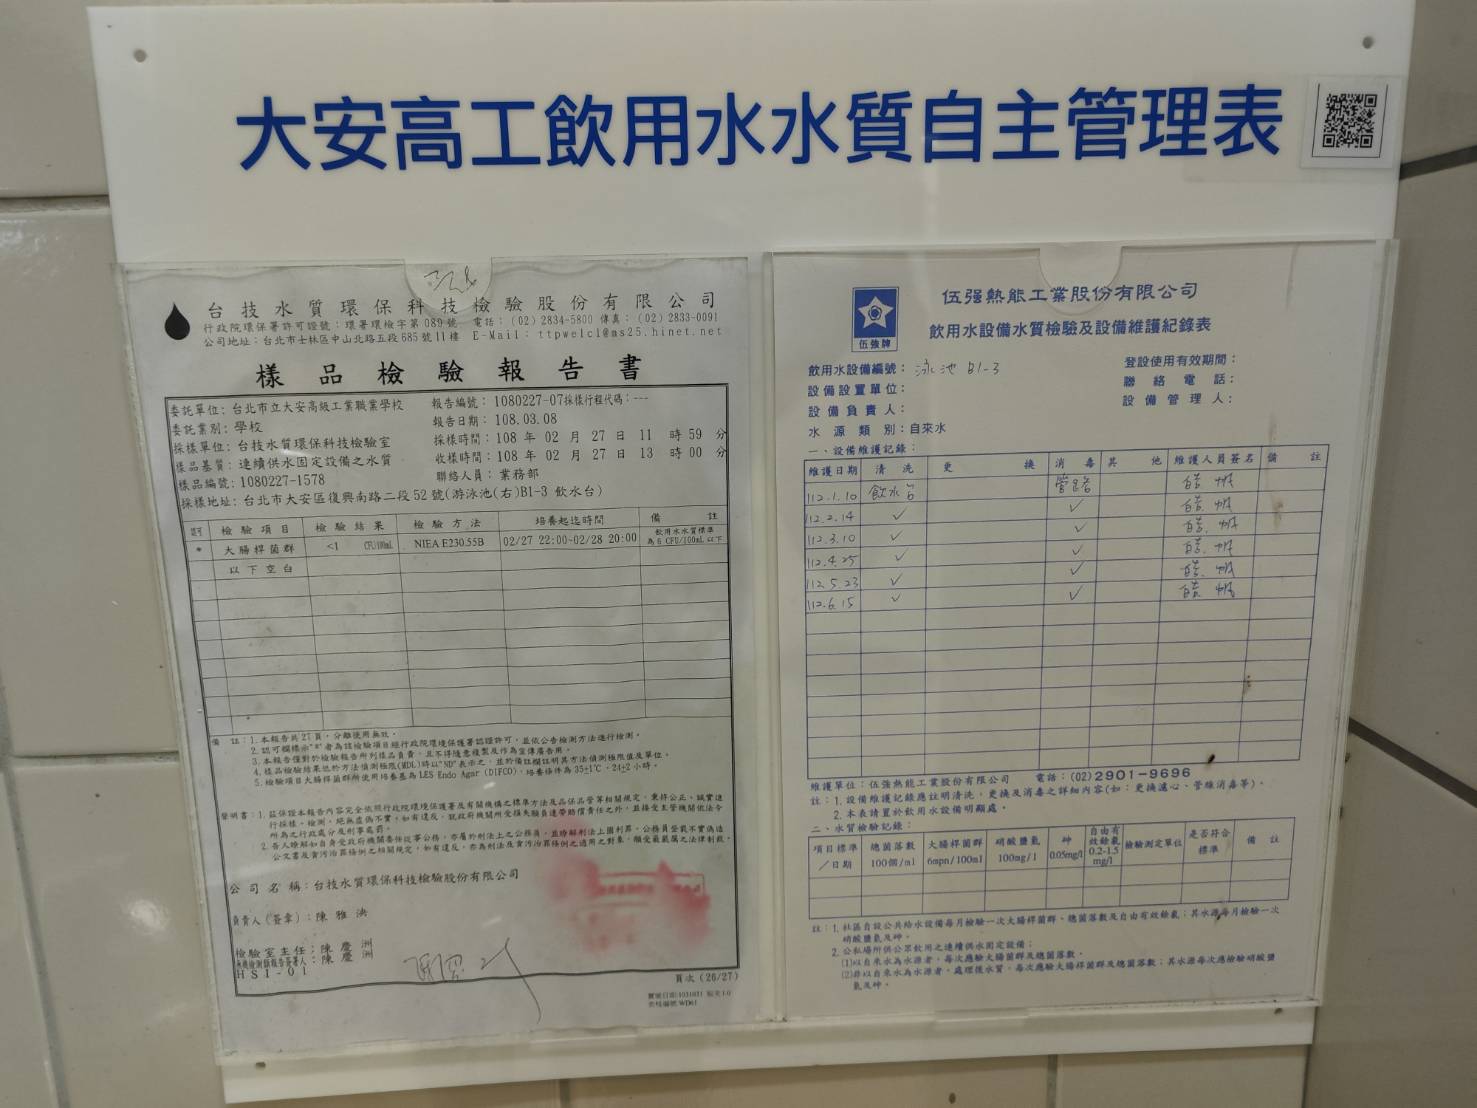 大安高工飲用水水質自主管理表
台技水質環保科技檢驗股份有限公司
行政院環保署許可證號：環署環檢字第089號 電話：(02) 2834-5800 傳真：(02) 2833-0091
公司地址：台北市士林區中山北路五段685號11樓 E-Mail： ttpwelcl@ms25.hinet.net
樣品檢驗報告書
委託單位：台北市立大安高級工業職業學校 報告編號：1080227-07採樣行程代碼：---
委託業別：學校 報告日期：108.03.08
採樣單位：台技水質環保科技檢驗室 採樣時間：108 年 02 月 27 日 11 時 59 分
樣品基質：連續供水固定設備之水質 收樣時間：108 年 02 月 27 日 13 時 00 分
樣品編號：1080227-1578 聯絡人員：業務部
採樣地址：台北市大安區復興南路二段52號(游泳池(右)B1-3 飲水台)
認可 檢驗項目 檢驗結果 檢驗方法 培養起迄時間 備註
* 大腸桿菌群 <1 CFU/100mL NIEA E230.55B 02/27 22:00~02/28 20:00 飲用水水質標準為6 CFU/100mL以下
以下空白
備註：1.本報告共27頁，分離使用無效。
2.認可欄標示"*"者為該檢驗項目經行政院環境保護署認證許可，並依公告檢測方法進行檢測。
3.本報告僅對於檢驗報告所列樣品負責，且不得隨意複製及作為宣傳廣告用。
4.樣品檢驗結果低於方法偵測極限(MDL)時以"ND"表示之，並於備註欄註明其方法偵測極限值及單位。
5.檢驗項目大腸桿菌群所使用培養基為LES Endo Agar (DIFCO)，培養條件為35±1℃，24±2小時。
聲明書：1.茲保證本報告內容完全依照行政院環境保護署及有關機構之標準方法及品保品管等相關規定，秉持公正、誠實進
行採樣、檢測。絕無虛偽不實，如有違反，就政府機關所受損失願負連帶賠償責任之外，並接受主管機關依法令
所為之行政處分及刑事處罰。
2.吾人瞭解如自身受政府機關委任從事公務，亦屬於刑法上之公務員，並瞭解刑法上圖利罪、公務員登載不實偽造
公文書及貪污治罪條例之相關規定，如有違反，亦為刑法及貪污治罪條例之適用之對象，願受最嚴厲之法律制裁。
公司名稱：台技水質環保科技檢驗股份有限公司
負責人(簽章)：陳雅洪
檢驗室主任：陳慶洲
無機檢測類報告簽署人：陳慶洲
HSI-01
頁次 (26/27)
伍強牌
伍强熱能工業股份有限公司
飲用水設備水質檢驗及設備維護紀錄表
飲用水設備編號：泳池 B1-3 登設使用有效期間：
設備設置單位： 聯絡電話：
設備負責人： 設備管理人：
水源類別：自來水
一、設備維護記錄：
維護日期 清洗 更換 消毒 其他 維護人員簽名 備註
112.1.10 飲水台 管路
112.2.14 ✓ ✓
112.3.10 ✓ ✓
112.4.25 ✓ ✓
112.5.23 ✓ ✓
112.6.15 ✓ ✓
維護單位：伍強熱能工業股份有限公司 電話：(02)2901-9696
註：1.設備維護記錄應註明清洗、更換及消毒之詳細內容(如：更換濾心、管線消毒等)。
2.本表請置於飲用水設備明顯處。
二、水質檢驗記錄：
項目標準/日期 總菌落數 100個/ml 大腸桿菌群 6mpn/100ml 硝酸鹽氮 100mg/l 砷 0.05mg/l 自由有效餘氯 0.2-1.5 mg/l 檢驗測定單位 是否符合標準 備註
註：1.社區自設公共給水設備每月檢驗一次大腸桿菌群、總菌落數及自由有效餘氯；其水源每月檢驗一次
硝酸鹽氮及砷。
2.公私場所供公眾飲用之連續供水固定設備：
(1)以自來水為水源者，每次應驗大腸桿菌群及總菌落數。
(2)非以自來水為水源者，處理後水質，每次應驗大腸桿菌群及總菌落數；其水源每次應檢驗硝酸鹽
氮及砷。